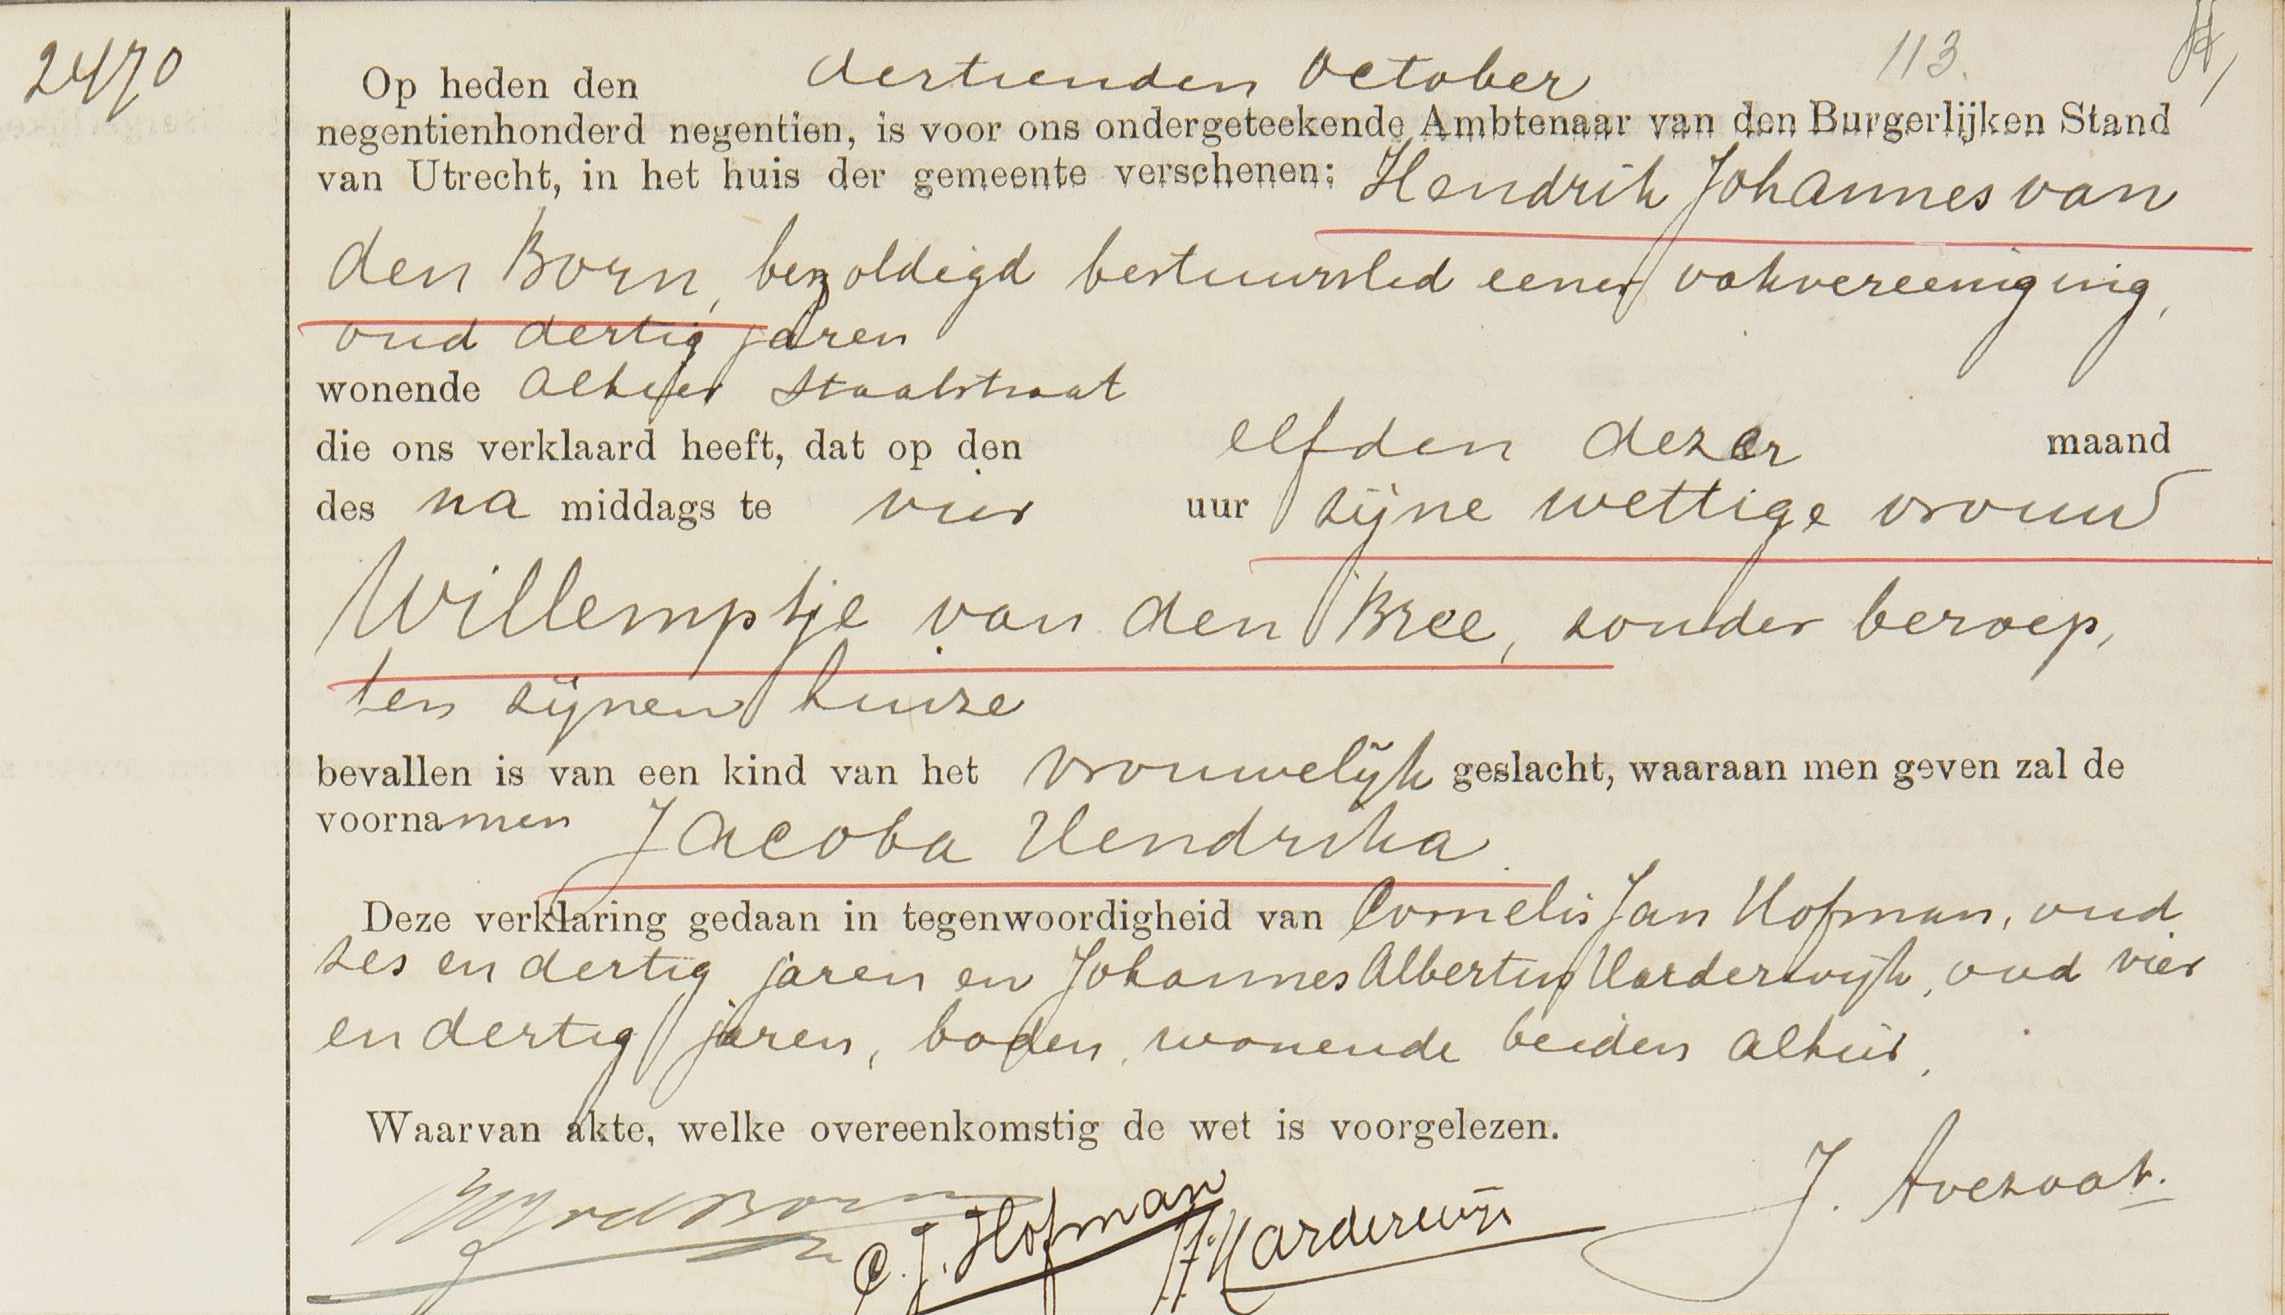 2470
113.
Op heden den dertienden October
negentienhonderd negentien, is voor ons ondergeteekende Ambtenaar van den Burgerlijken Stand
van Utrecht, in het huis der gemeente verschenen: Hendrik Johannes van
den Born, bezoldigd bestuurslid eener vakvereeniging,
oud dertig jaren
wonende alhier Staalstraat
die ons verklaard heeft, dat op den elfden dezer maand
des na middags te vier uur zijne wettige vrouw
Willemptje van den Bree, zonder beroep,
ten zijnen huize
bevallen is van een kind van het vrouwelijk geslacht, waaraan men geven zal de
voornamen Jacoba Hendrika
Deze verklaring gedaan in tegenwoordigheid van Cornelis Jan Hofman, oud
zes en dertig jaren en Johannes Albertus Harderwijk, oud vier
en dertig jaren, boden, wonende beiden alhier.
Waarvan akte, welke overeenkomstig de wet is voorgelezen.
HJvdBorn
C. J. Hofman
Harderwijk
J. Avezaat.